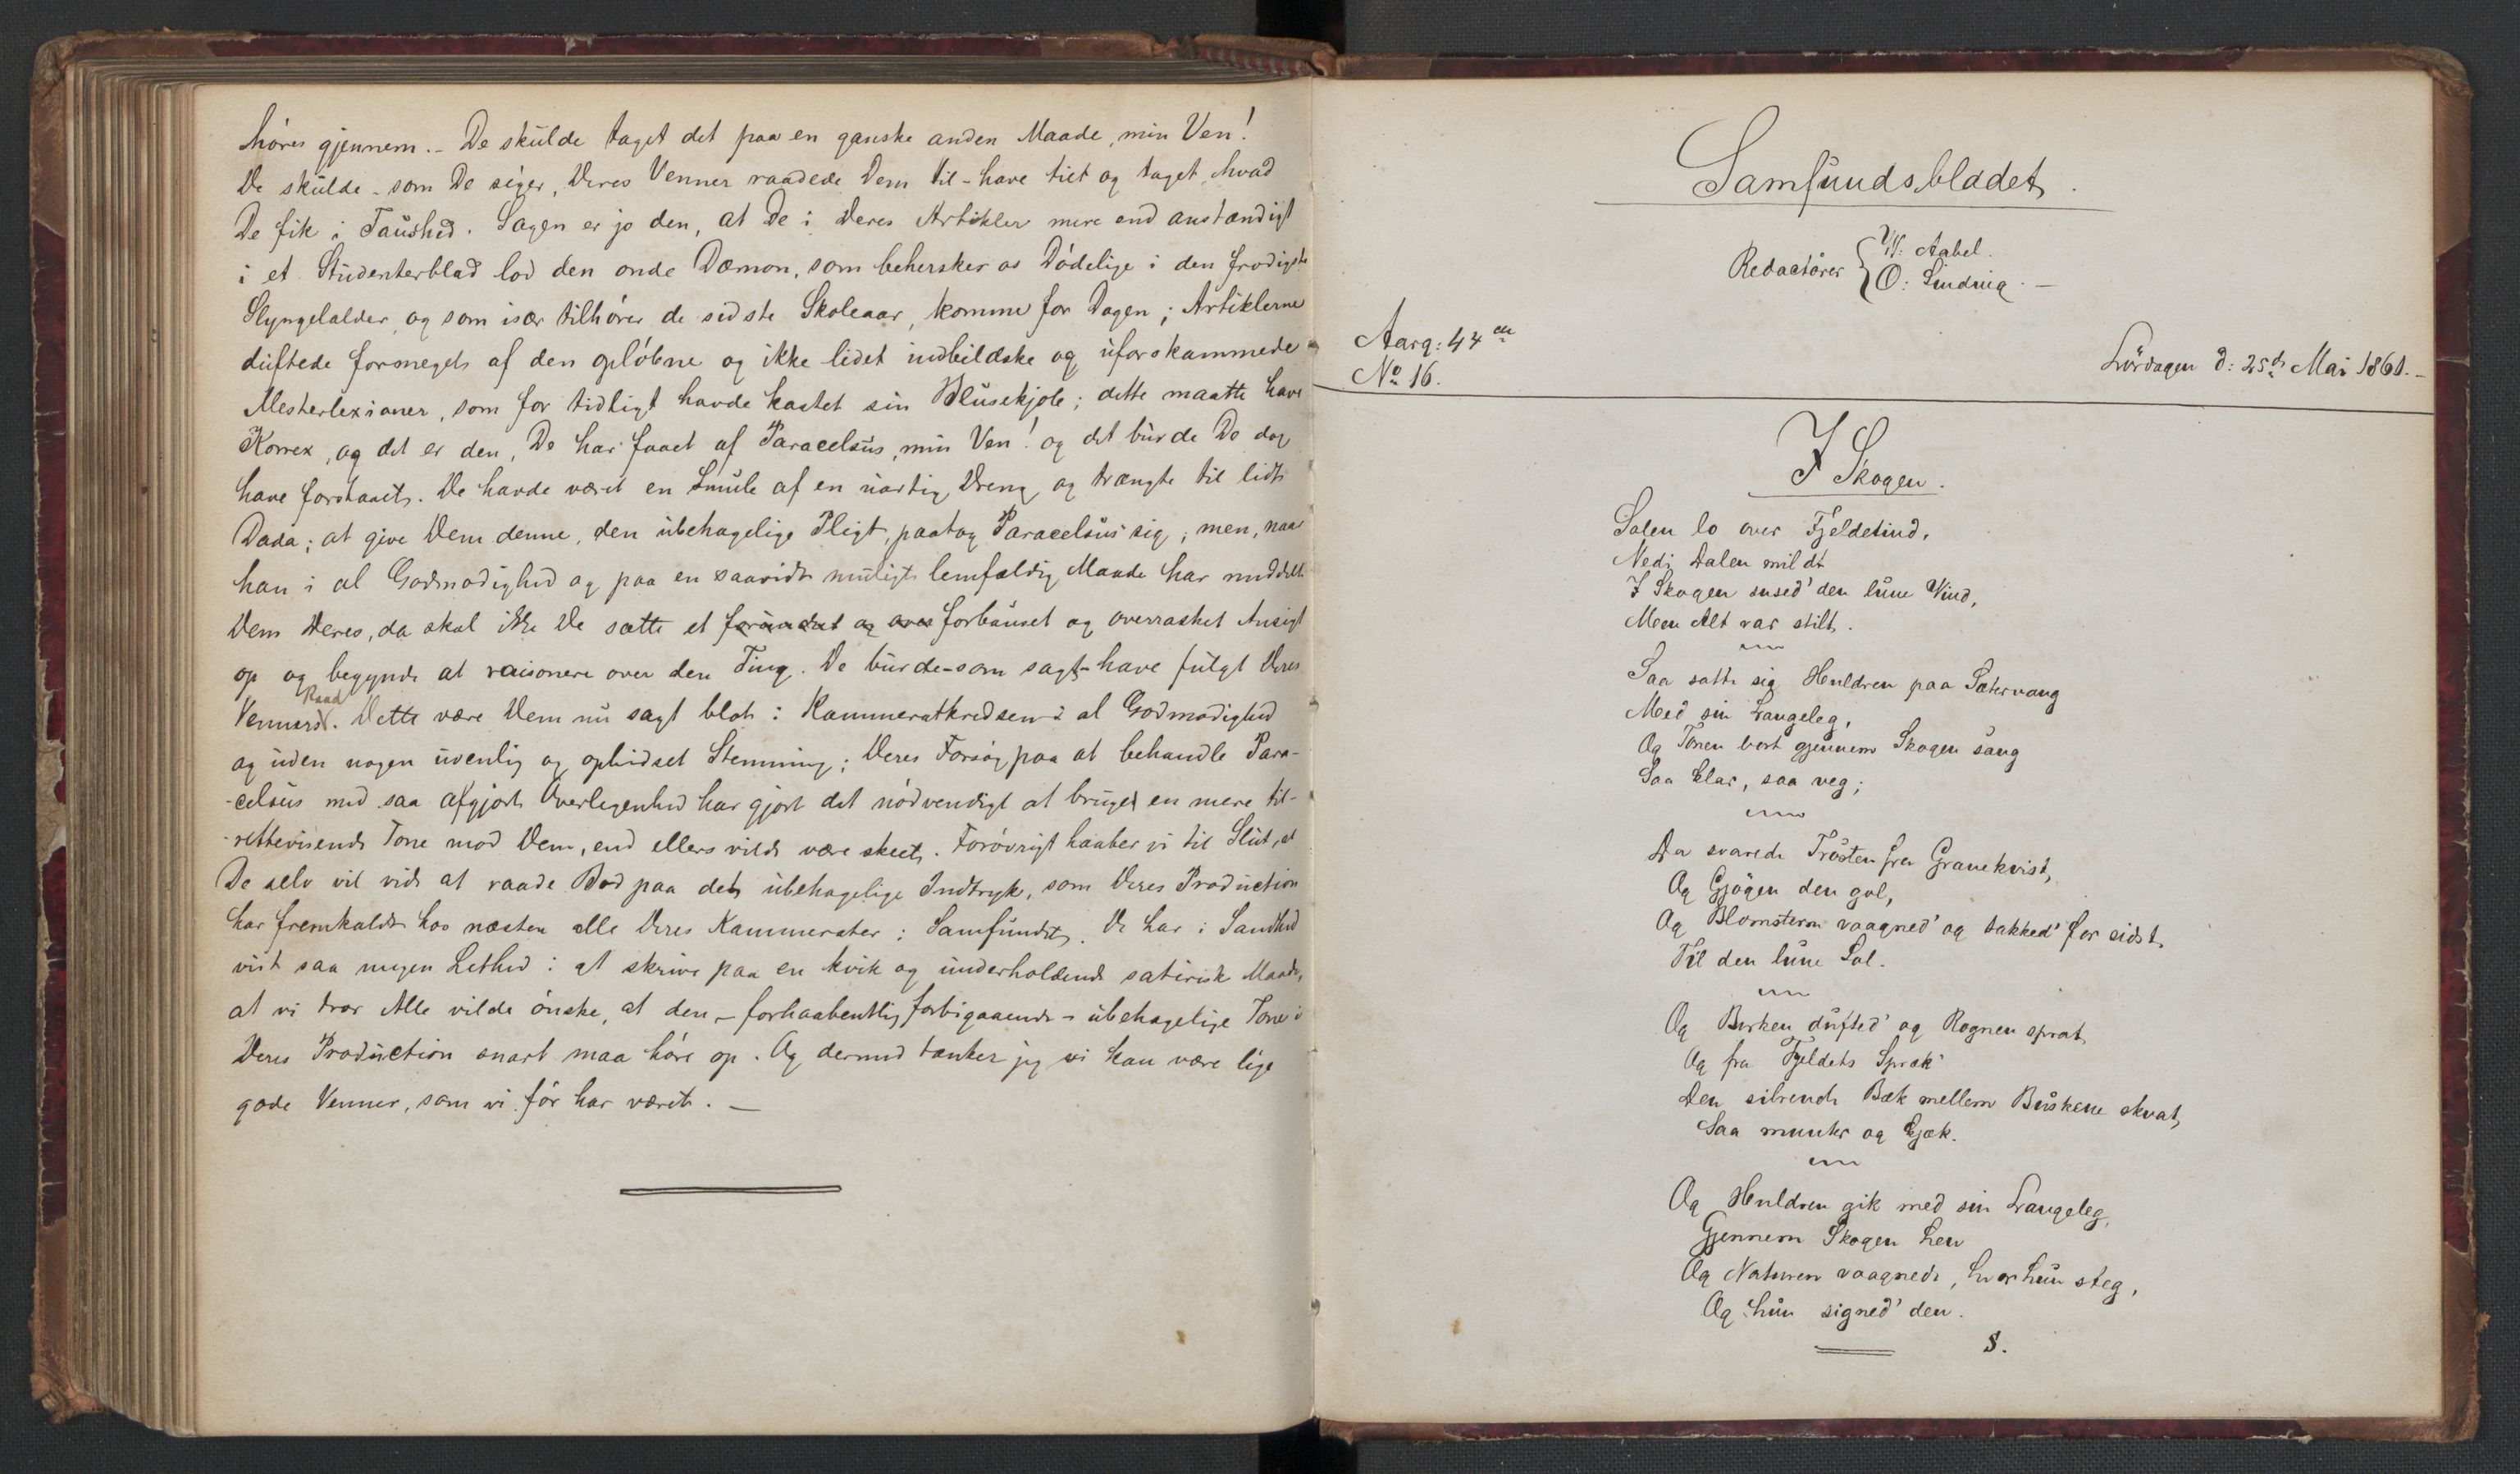 høres gjennem. – De skulde taget det paa en ganske anden Maade, min Ven!
De skulde – som De siger, Deres Venner raadede Dem til – have tiet og taget, hvad
De fik i Taushed. Sagen er jo den, at De i Deres Artikler mere end anstændigt
i et Studenterblad lod den onde Dæmon, som behersker os Dødelige i den frodigste
Slyngelalder, og som især tilhører de sidste Skoleaar, komme for Dagen; Artiklerne
duftede formeget af den opløbne og ikke lidet indbildske og uforskammede
Mesterlexianer, som for tidligt havde kastet sin Blusekjole; dette maatte have
Korrex, og det er den, De har faaet af Paracelsus, min Ven! og det burde De dog
have forstaaet. De havde været en Smule af en uartig Dreng og trængte til lidt
Dada; at give Dem denne, den ubehagelige Pligt, paatog Paracelsus sig; men, naar
han i al Godmodighed og paa en saavidt muligt lemfældig Maade har meddelt
Dem Deres, da skal ikke De sætte et forundret og over forbauset og overrasket Ansigt
op og begynde at raisonere over den Ting. De burde – som sagt – have fulgt Deres
Venners Raad. Dette være Dem nu sagt blot i Kammeratkredsen i al Godmodighed
og uden nogen uvenlig og ophidset Stemning; Deres Forsøg paa at behandle Para-
-celsus med saa afgjort Overlegenhed har gjort det nødvendigt at bruge en mere til-
-rettevisende Tone mod Dem, end ellers vilde være skeet. Forøvrigt haaber vi til Slut, at
De selv vil vide at raade Bod paa det ubehagelige Indtryk, som Deres Production
har fremkaldt hos næsten alle Deres Kammerater i Samfundet. De har i Sandhed
vist saa megen Lethed i at skrive paa en kvik og underholdende satirisk Maade,
at vi tror Alle vilde ønske, at den – forhaabentlig forbigaaende – ubehagelige Tone i
Deres Production snart maa høre op. Og dermed tænker jeg vi kan være lige
gode Venner, som vi før har været. –
Samfundsbladet.
Redactører { W: Aabel.
O: Lindvig. –
Aarg: 44de
No 16.
Lørdagen d: 25de Mai 1861. –
I Skogen.
Solen lo over Fjeldetind,
Nedi Dalen mildt
I Skogen sused' den lune Vind,
Men Alt var stilt.
Saa satte sig Huldren paa Sætervang
Med sin Langeleg,
Og Tonen bort gjennem Skogen sang
Saa klar, saa veg;
Da svarede Trosten fra Granekvist,
Og Gjøgen den gol,
Og Blomstern vaagned' og takked' for sidst
Til den lune Sol.
Og Birken dufted' og Rognen sprat
Og fra Fjeldets Spræk'
Den silrende Bæk mellem Buskene skvat,
Saa munter og kjæk.
Og Huldren gik med sin Langeleg,
Gjennem Skogen hen
Og Naturen vaagnede, hvor hun steg,
Og hun signed' den.
S.